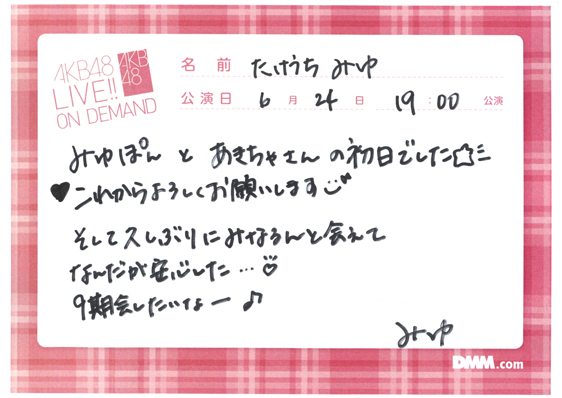 AKB48
LIVE!!
ON DEMAND
AKB
48
名前 たけうち みゆ
公演日 6月 24日 19:00 公演
みゆぽん と あきちゃさん の初日でした☆彡
♥これからよろしくお願いします
そして久しぶりにみなるんと会えて
なんだか安心した…
9期会したいなー♪
みゆ
DMM.com